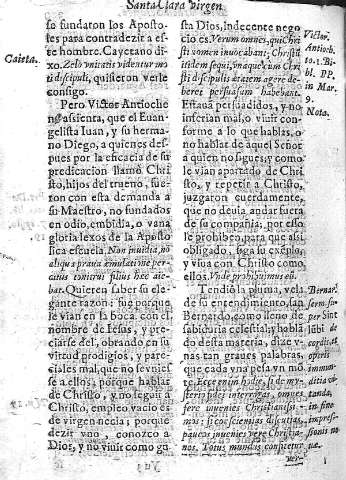 Santa Clara virgen.
se fundaron los Aposto-
les para contradezir a es-
te hombre. Cayetano di-
xo. Zelo unitatis videntur mo
ti discipuli, quisieron verle
consigo.
Pero Victor Antioche
no assienta, que el Euan-
gelista Iuan, y su herma-
no Diego, a quienes des-
pues por la eficacia de su
predicacion llamò Chris
to, hijos del trueno, fue-
ron con esta demanda a
su Maestro, no fundados
en odio, embidia, o vana
gloria lexos de la Aposto
lica escuela. Non inuidia, ne
aliqua praua æmulatione per-
citus tonitrui filius hæc aie-
bat. Quieren saber su ele-
gante razon: fue porque
le vian en la boca con el
nombre de Iesus, y pre-
ciarse del, obrando en su
virtud prodigios, y pare-
ciales mal, que no se vnies-
se a ellos; porque hablar
de Christo, y no seguir a
Christo, empleo vacio es
de virgen necia; porque
dezir vno, conozco a
Dios, y no viuir como gu
Caieta.
sta Dios, indecente nego
cio es. Verum omnes, qui Chri
sti nomen inuocabant, Christũ
itidem sequi, vnaque cum Chri
sti discipulis ætatem agere de-
beret persuasum habebant.
Estaua persuadidos, y no
inferian mal, o viuir con-
forme a lo que hablas, o
no hablar de aquel Señor
a quien no sigues; y como
le vian apartado de Chri
sto, y repetir a Christo,
juzgaron cuerdamente,
que no deuia andar fuera
de su compañia; por esso
le prohiben, para que assi
obligado, siga su exẽplo,
y viua con Christo como
ellos. Vnde prohibuimus eũ.
Tendiò la pluma, vela
de su entendimiento, san
Bernardo, como lleno de
sabiduria celestial; y hablã
do desta materia, dize v-
nas tan graues palabras,
que cada vna pesa vn mõ
te. Ecce enim hodie, si de my-
sterio fidei interroges, omnes
fere inuenies Christianissi-
mos; si conscientias discutias,
paucos inuenies vere Christia-
nos. Totus mundus confitetur
ver-
Victor.
Antioch.
to. 1. Bi
bl. PP.
in Mar.
9.
Nota.
Bernar.
serm. so-
per Sint
lũbi
cordi
operis
immun-
ditia vi-
tanda,
in fine
impres-
sionis no
uæ.